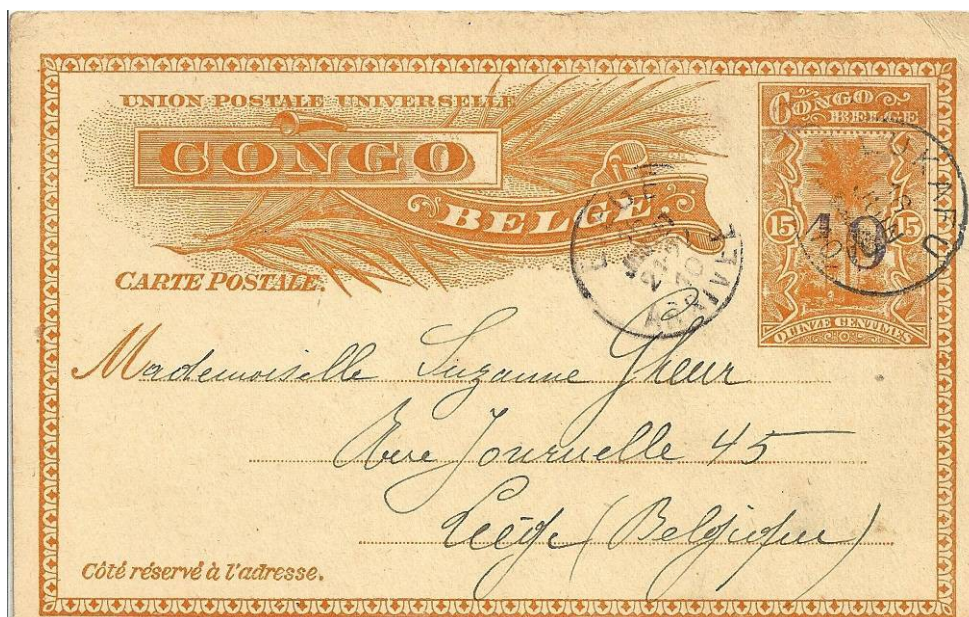 UNION POSTALE UNIVERSELLE
CONGO
BELGE.
CARTE POSTALE.
CONGO
BELGE
15 10 15
QUINZE CENTIMES
LUKAFU
ARRIVEE
Mademoiselle Suzanne Gheur
Rue Journelle 45
Liége (Belgique)
Côté réservé à l'adresse.